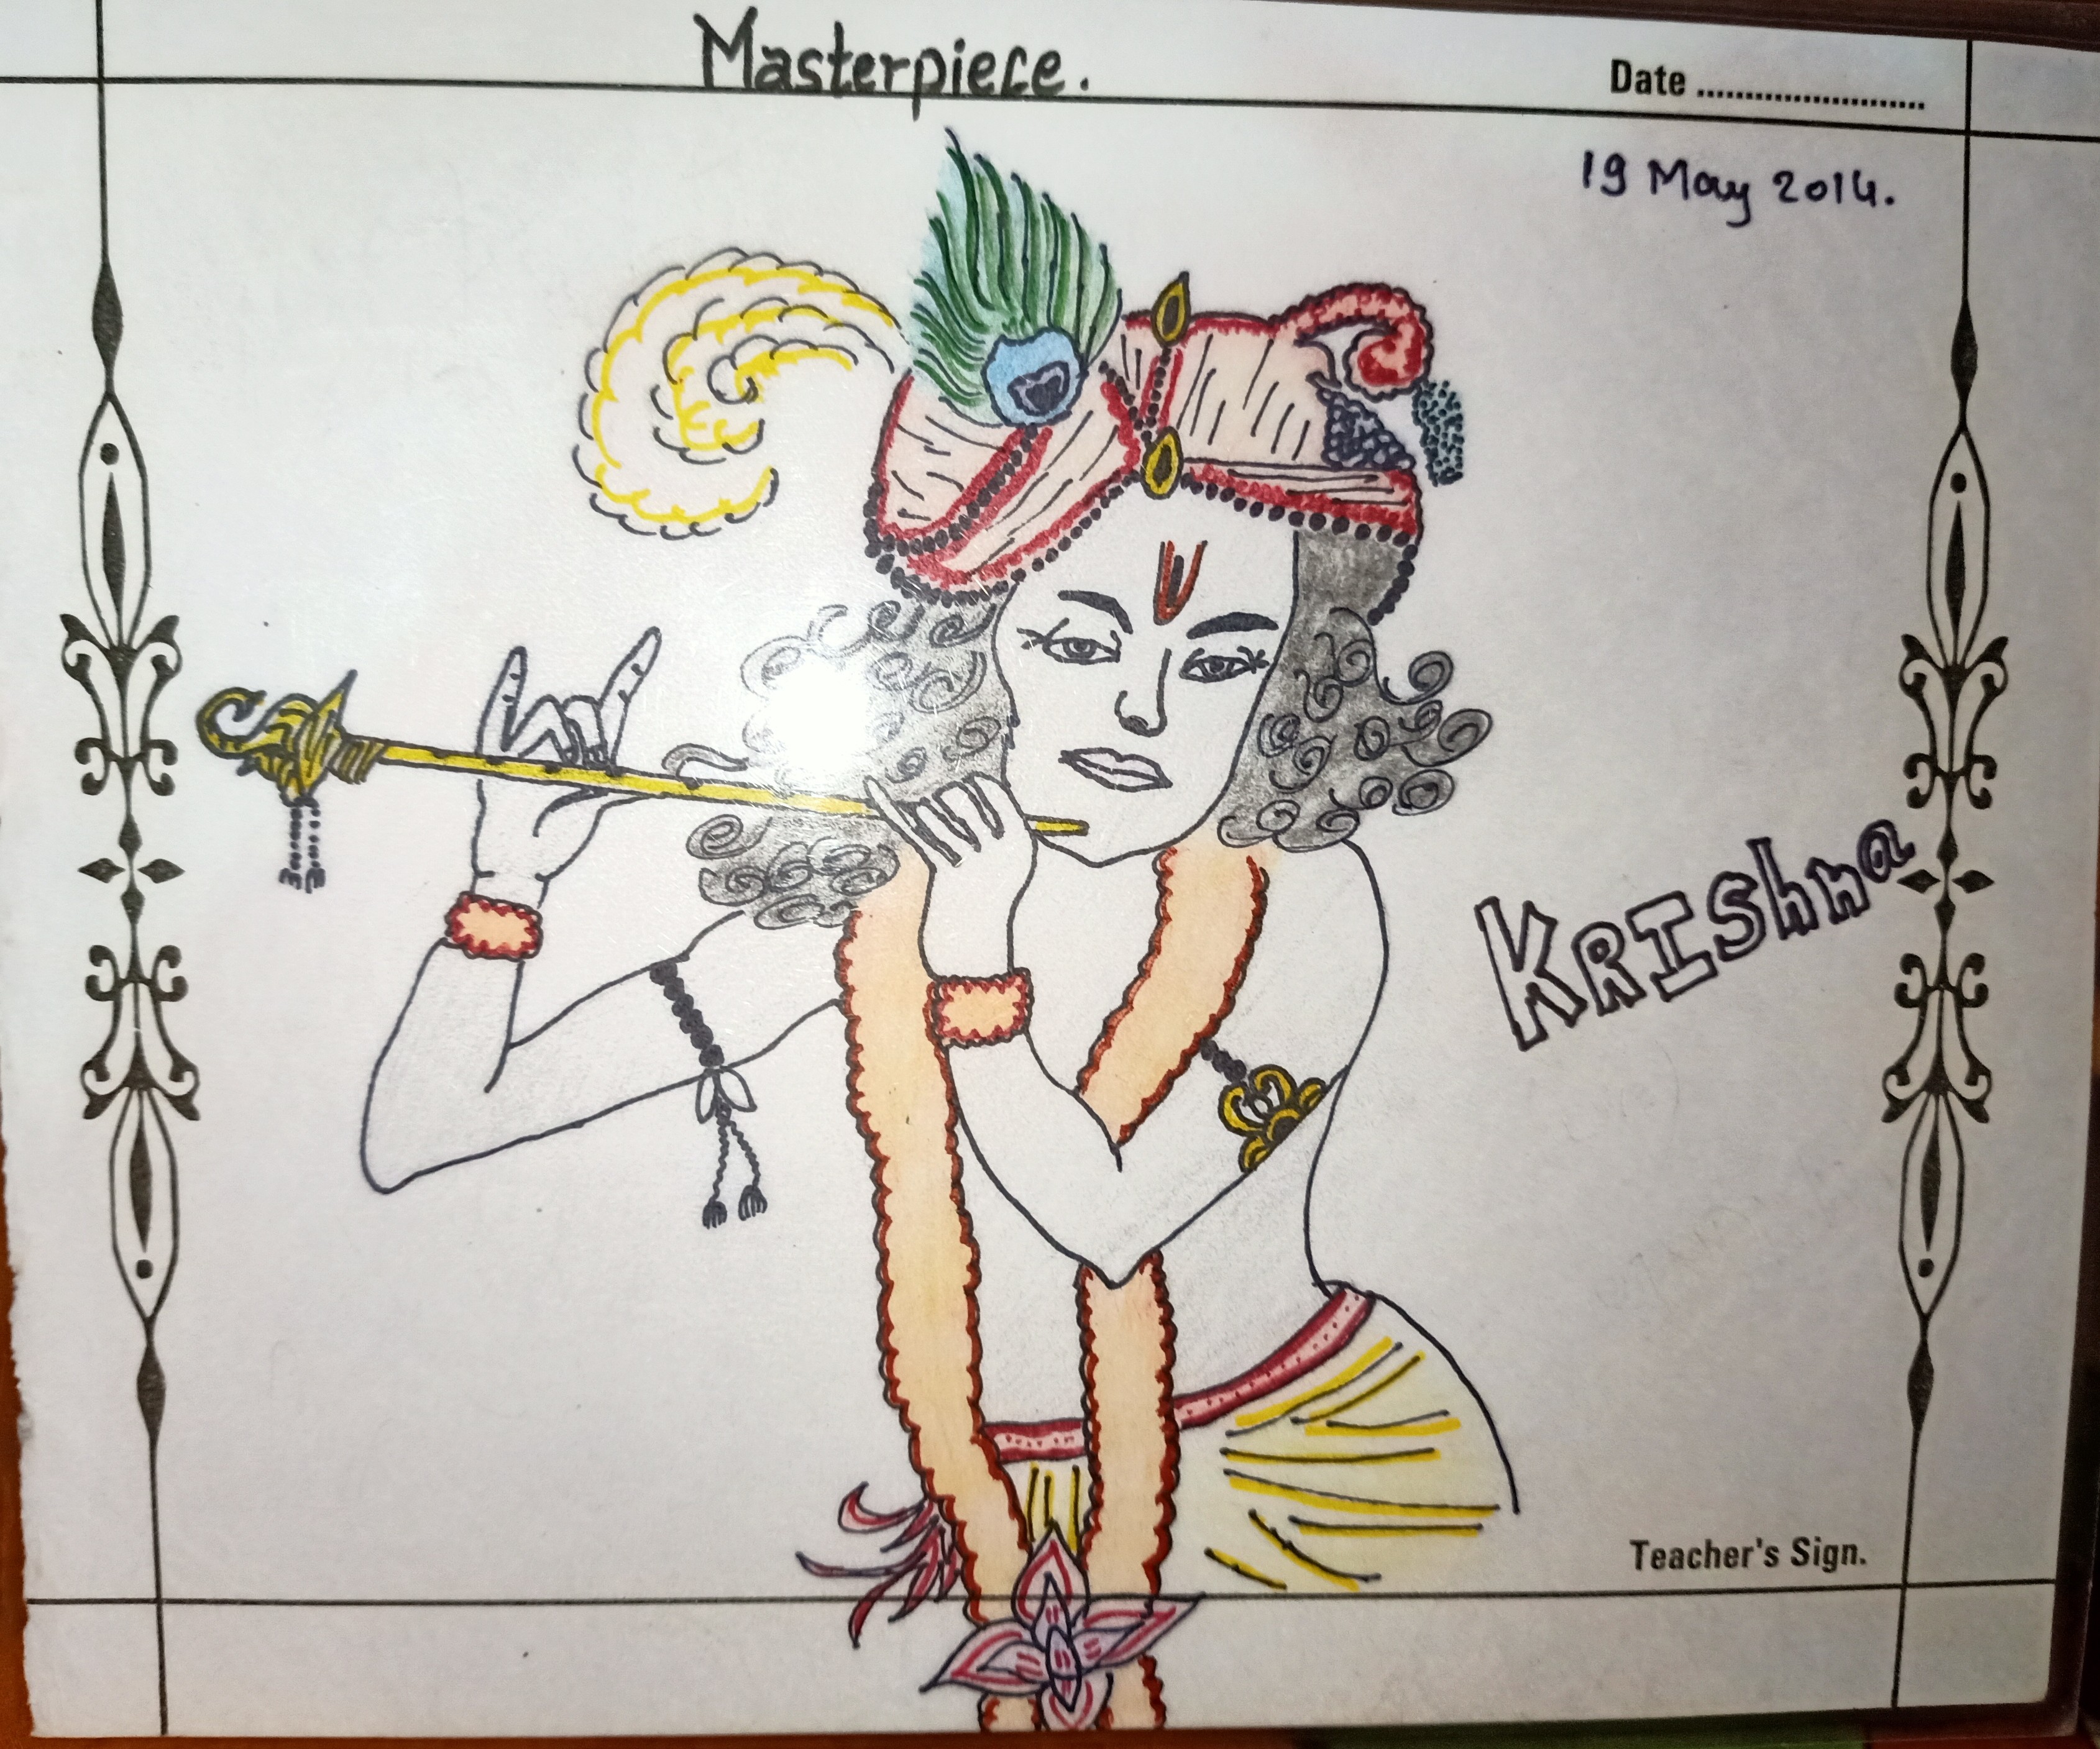 Masterpiece.
Date ........................
19 May 2014.
KRIShna
Teacher's Sign.